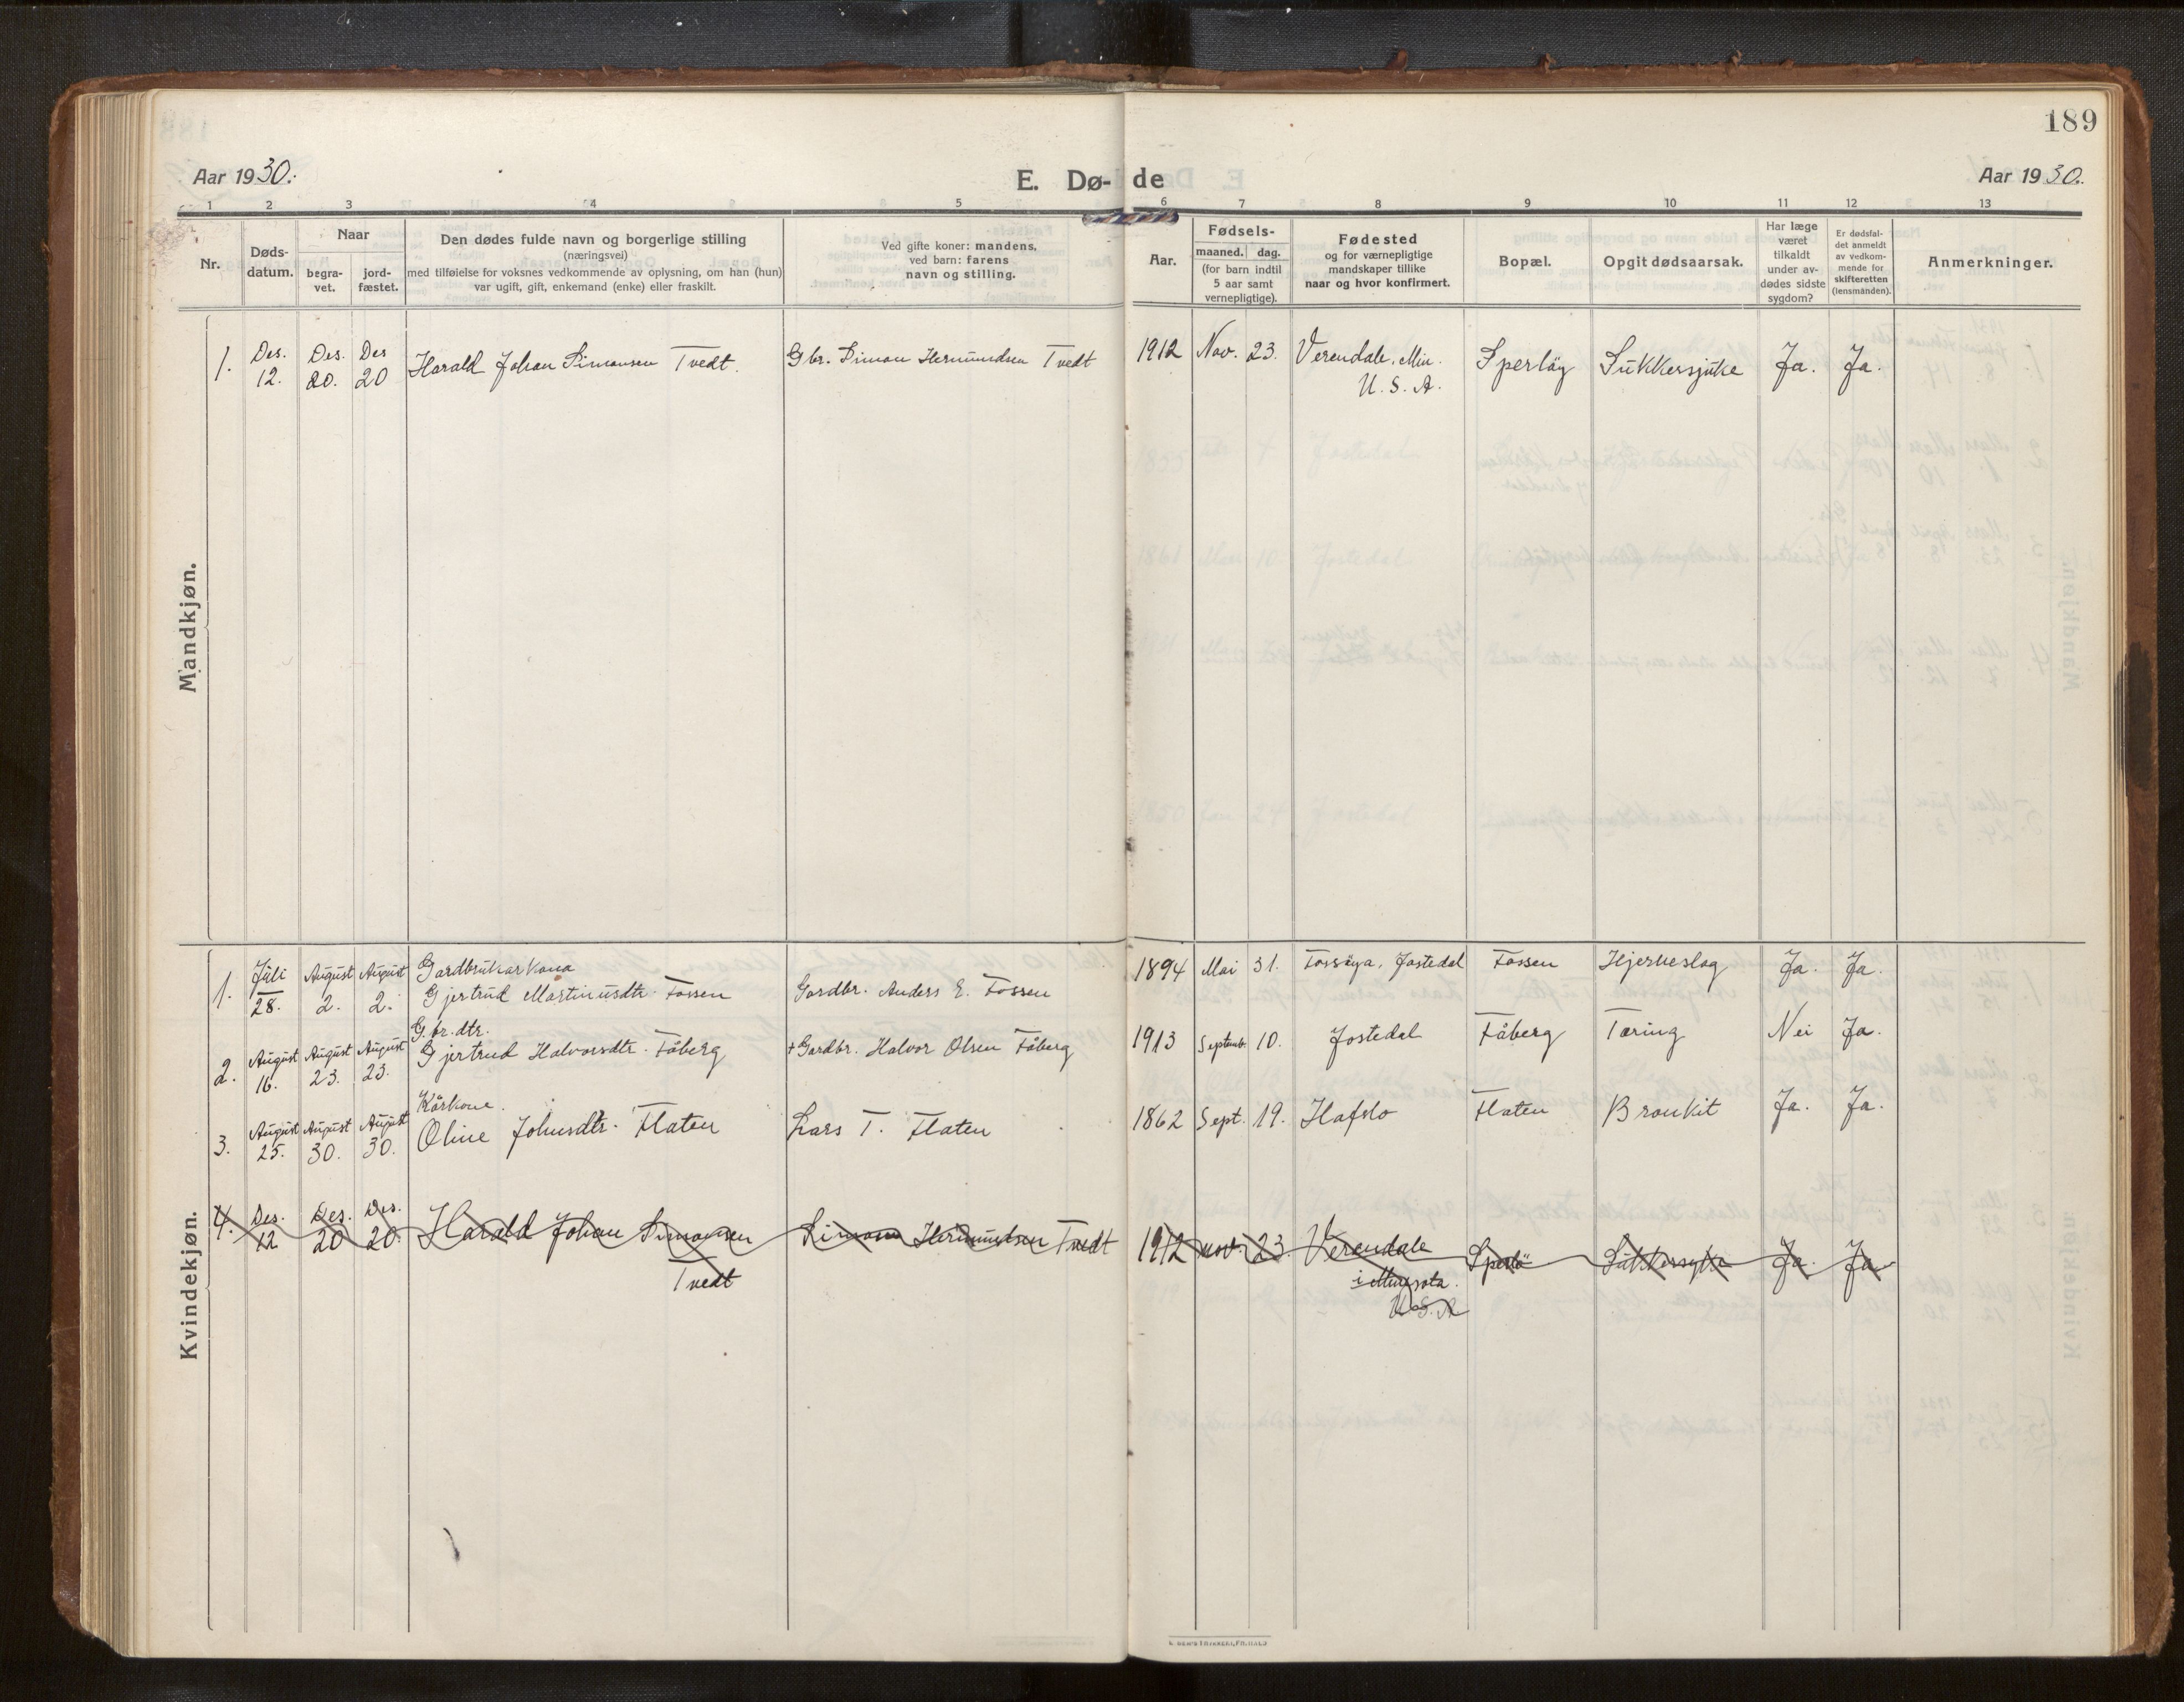 189
Aar 1930.
E. Dø-de
Aar 1930.
1 2 3 4 5 6 7 8 9 10 11 12 13
Nr.
Døds-
datum.
Naar
begra-
vet.
jord-
fæstet.
Den dødes fulde navn og borgerlige stilling
(næringsvei)
med tilføielse for voksnes vedkommende av oplysning, om han (hun)
var ugift, gift, enkemand (enke) eller fraskilt.
Ved gifte koner: mandens,
ved barn: farens
navn og stilling.
Aar.
Fødsels-
maaned. dag.
(for barn indtil
5 aar samt
vernepligtige).
Fødested
og for værnepligtige
mandskaper tillike
naar og hvor konfirmert.
Bopæl.
Opgit dødsaarsak.
Har læge
været
tilkaldt
under av-
dødes sidste
sygdom?
Er dødsfal-
det anmeldt
av vedkom-
mende for
skifteretten
(lensmanden).
Anmerkninger.
Mandkjøn.
1. Des. 12. Des. 20. Des 20 Harald Johan Simonsen Tvedt. Gbr. Simon Hermundsen Tvedt 1912 Nov. 23. Verendale, Min. Sperlöy Sukkersjuke Ja. Ja.
U. S. A.
Kvindekjøn.
Gardbrukarkona
1. Juli 28. August 2. August 2. Gjertrud Martinusdtr. Fossen Gardbr. Anders E. Fossen 1894 Mai 31. Fossöya, Jostedal Fossen Hjerneslag Ja. Ja.
G.br.dtr.
2. August 16. August 23. August 23. Gjertrud Halvorsdtr. Fåberg + Gardbr. Halvor Olsen Fåberg 1913 Septemb. 10. Jostedal Fåberg Tæring Nei Ja.
Kårkone.
3. August 25. August 30. August 30. Oline Johnsdtr. Flaten Lars T. Flaten 1862 Sept. 19. Hafslo Flaten Bronkit Ja. Ja.
4. Des. 12 Des. 20 Des. 20. Harald Johan Simonsen Simon Hermundsen Tvedt 1912 nov. 23. Verendale Sperlö Sukkersyke Ja. Ja
Tvedt i Minesota.
U.S.A